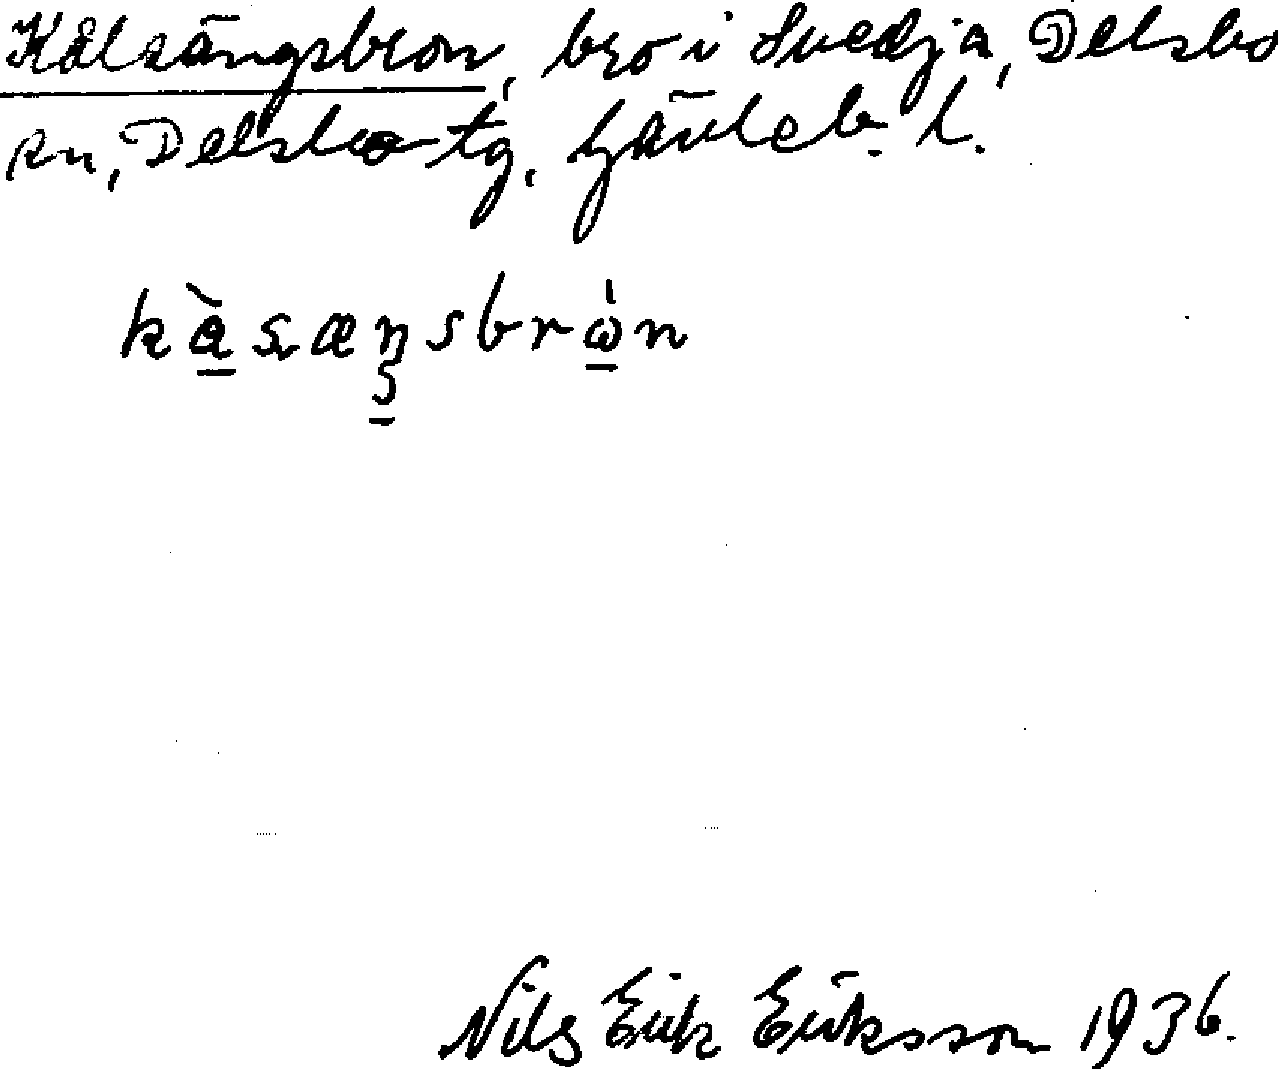 Kålsängsbron, bro i Svedja, Delsbo
sn, Delsbo tg, Gävleb. l.
kàsæŋsbrωn
Nils Erik Eriksson 1936.